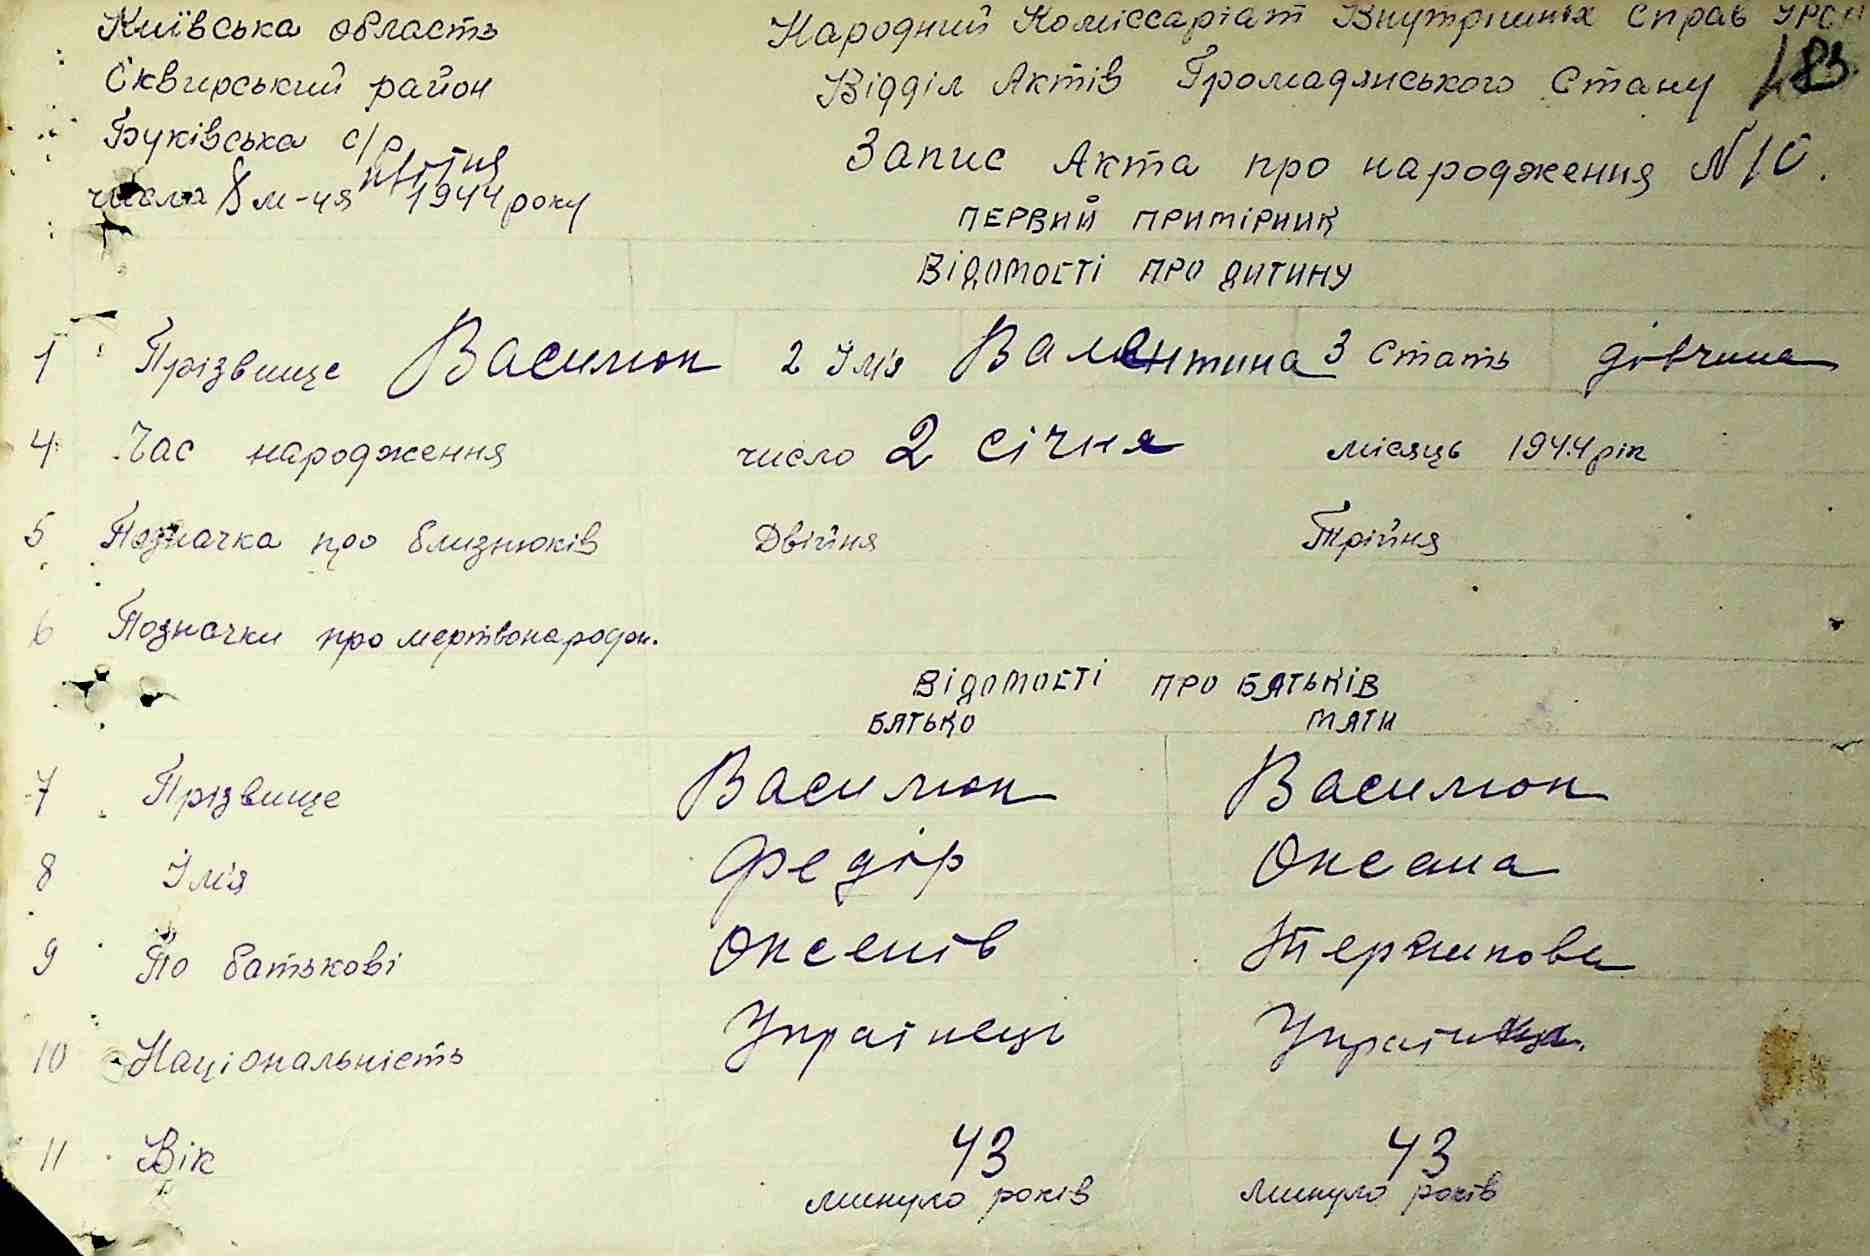 Київська область
Сквирський район
Буківська с/р
числа 8 м-ця квітня 1944 року
Народний Коміссаріат Внутрішніх Справ УРСР
Відділ Актів Громадянського Стану
183
Запис Акта про народження N10.
ПЕРВИЙ ПРИМІРНИК
Відомості про дитину
1 Прізвище Василюк 2 Ім'я Валентина 3 Стать дівчина
4 Час народження число 2 січня місяць 1944 рік
5 Позначка про близнюків Двійня Трійня
6 Позначки про мертвонародж.
Відомості про батьків
БАТЬКО МАТИ
7 Прізвище Василюк Василюк
8 Ім'я Федір Оксана
9 По батькові Оксентів
10 Національність Українець Українка
11 Вік 43 43
минуло років минуло років